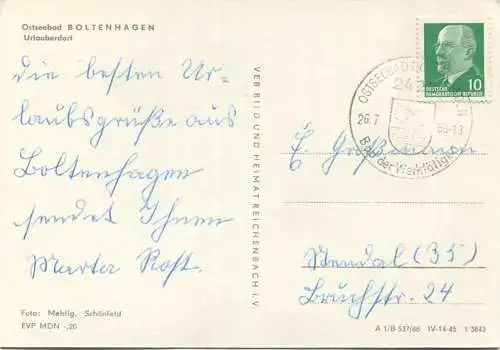 Ostseebad BOLTENHAGEN
Urlauberdorf
die besten Ur-
laubsgrüße aus
Boltenhagen
sendet Ihnen
Marta Rost.
Foto: Mehlig, Schönfeld
EVP MDN -,20
VEB BILD UND HEIMAT REICHENBACH I. V.
OSTSEEBAD
24
26.7
66-13
Bad der Werktätigen
10
DEUTSCHE
DEMOKRATISCHE REPUBLIK
Stendal (35)
Bruchstr. 24
A 1/B 537/66 IV-14-45 1/3843